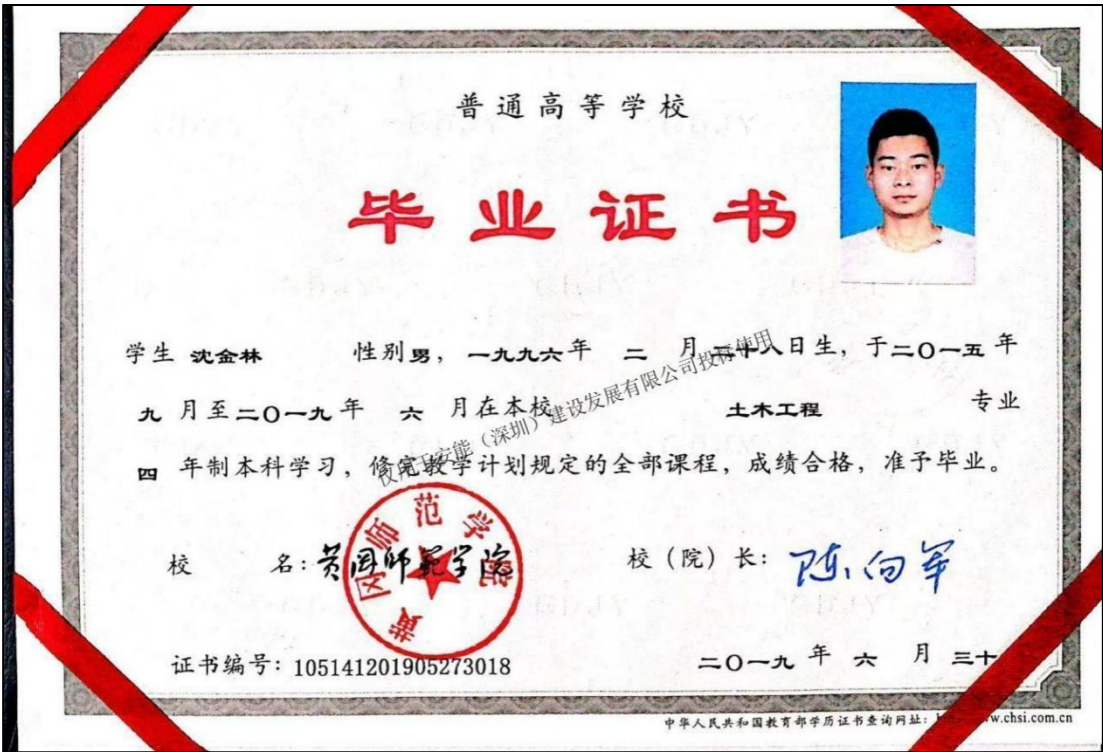 普通高等学校
毕业证书
学生 沈金林 性别男，一九九六年 二 月二十八日生，于二〇一五年
九 月至二〇一九年 六 月在本校 土木工程 专业
四 年制本科学习，修完教学计划规定的全部课程，成绩合格，准予毕业。
仅用于安能（深圳）建设发展有限公司投标使用
校 名：黄冈师范学院
黄冈师范学院
校（院）长：陈向军
证书编号：105141201905273018
二〇一九 年 六 月 三十
中华人民共和国教育部学历证书查询网址：
w.chsi.com.cn